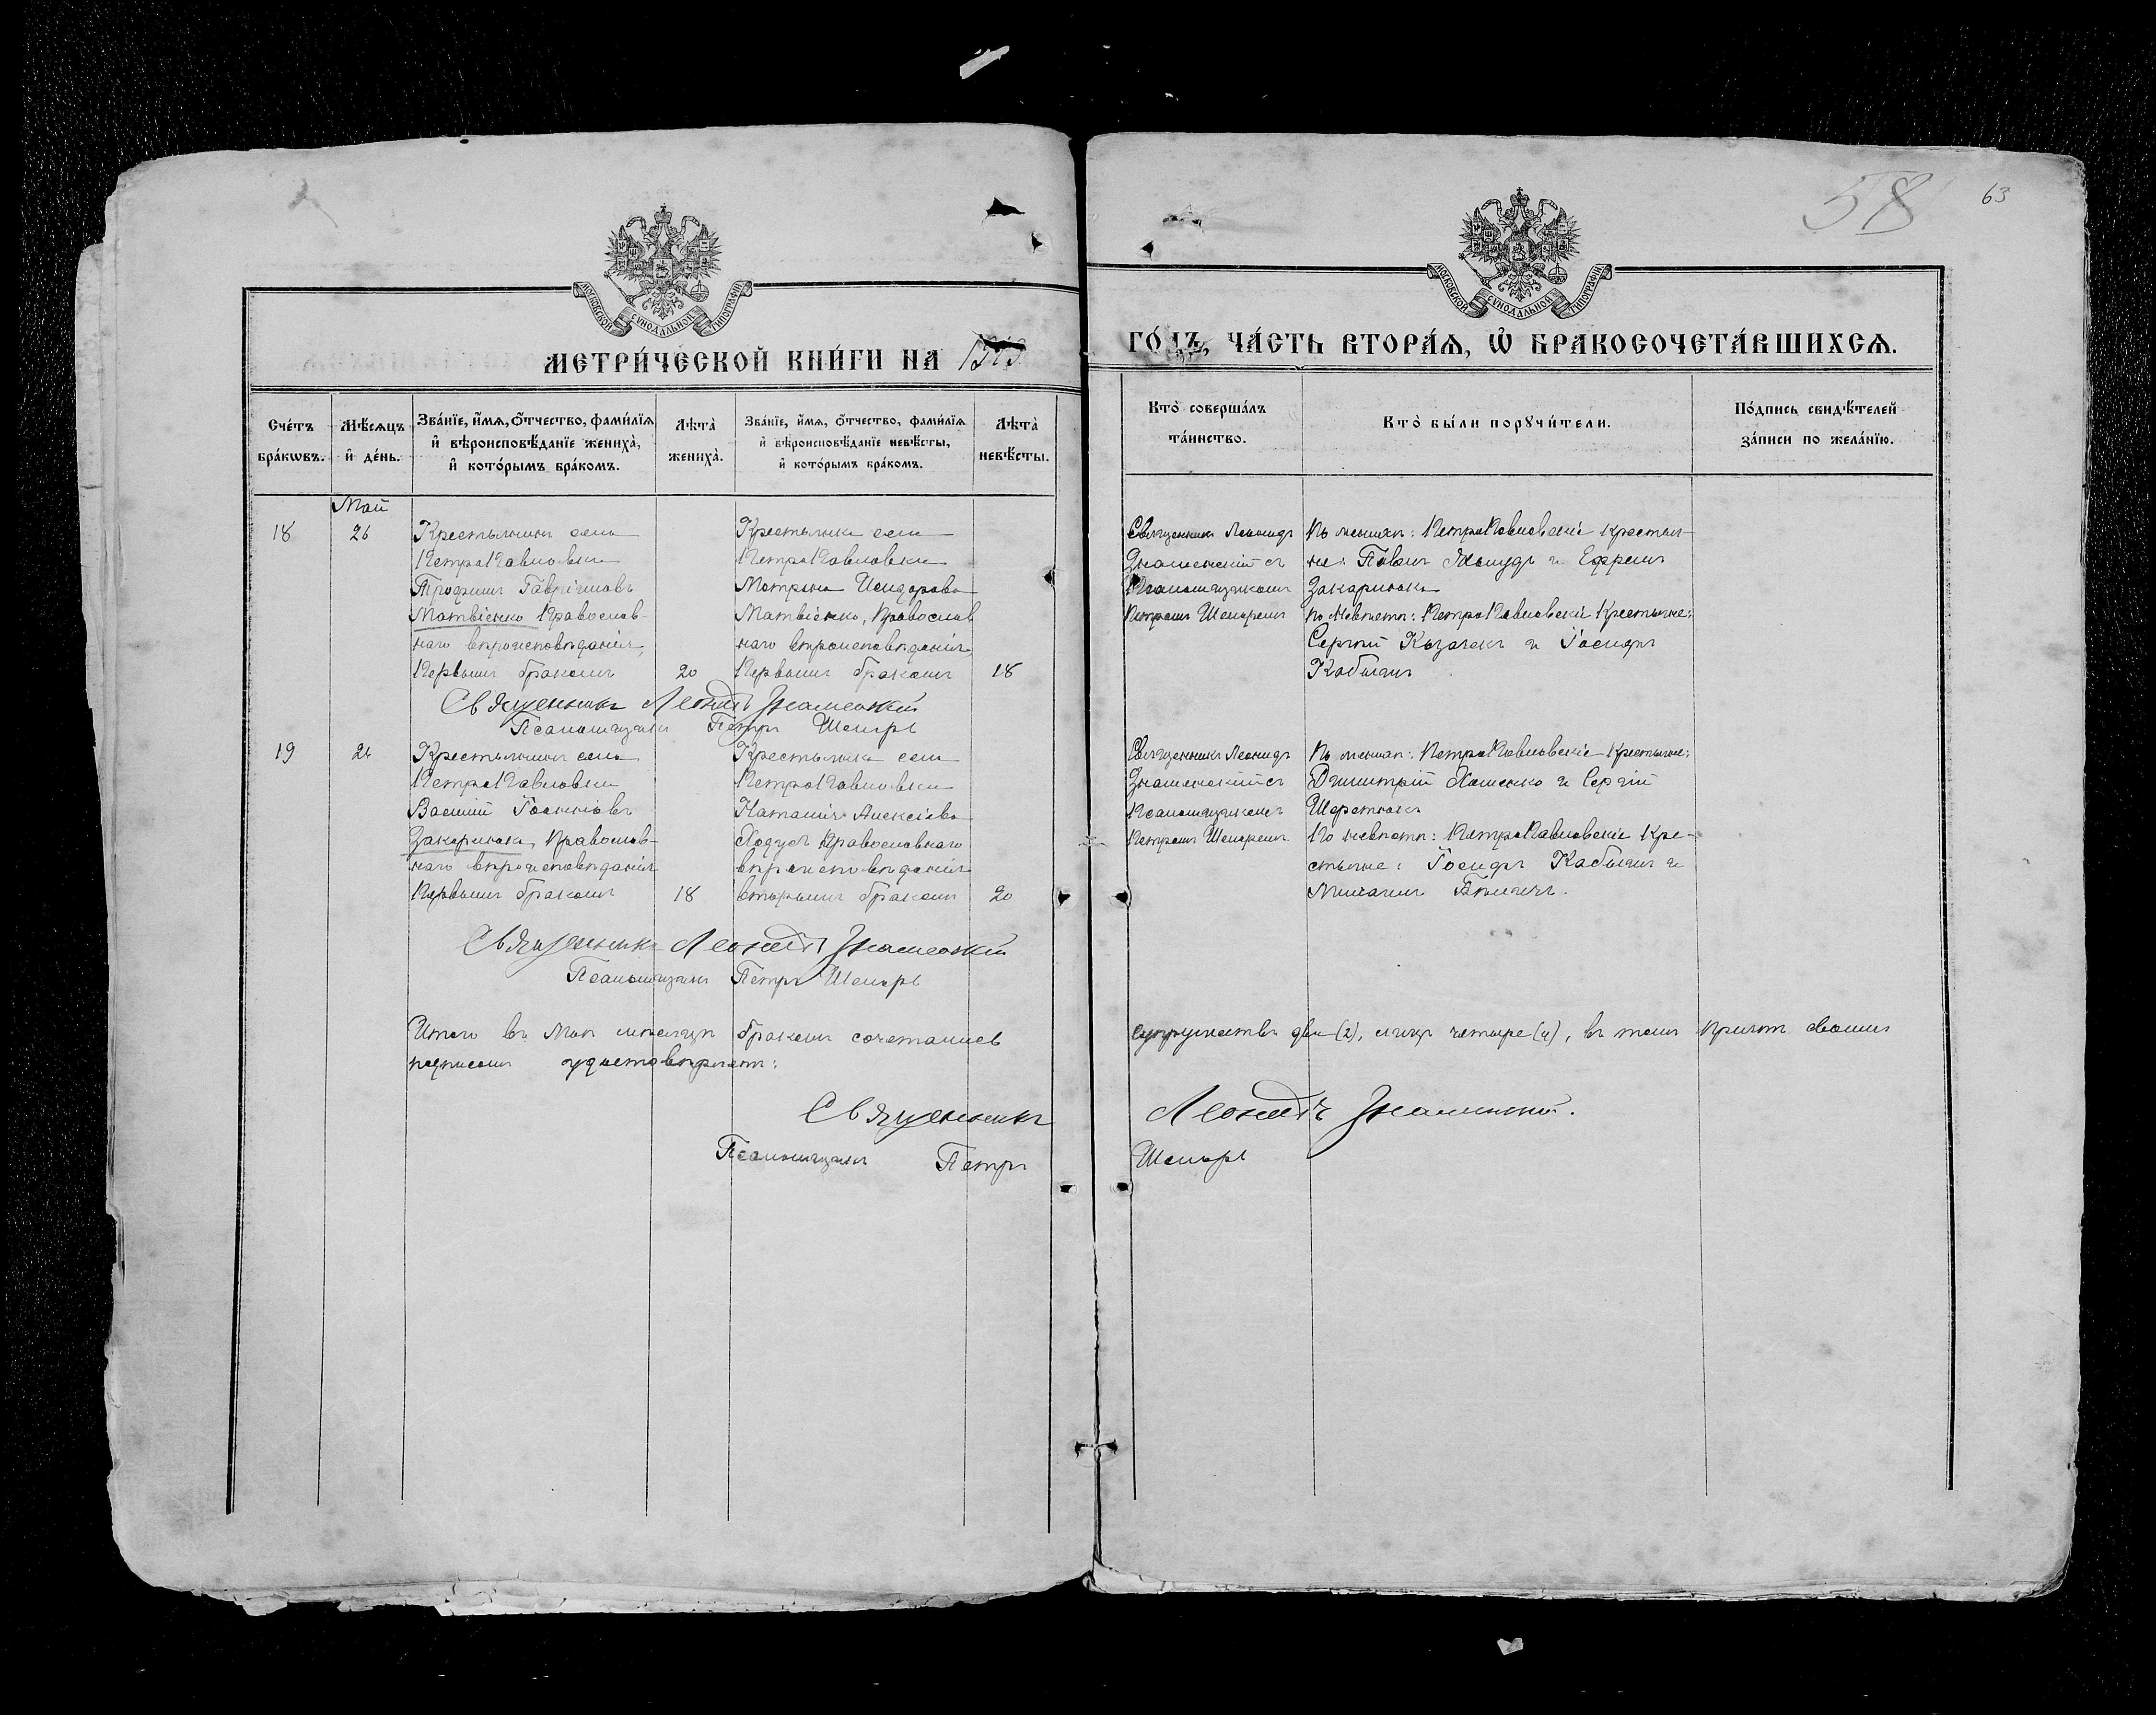 58
63
МОСКОВСКОЙ СѴНОДАЛЬНОЙ ТИПОГРАФІИ
МОСКОВСКОЙ СѴНОДАЛЬНОЙ ТИПОГРАФІИ
МЕТРИ́ЧЕСКОЙ КНИ́ГИ НА
ГО́ДЪ, ЧА́СТЬ ВТОРА́Ѧ, Ѡ҆ БРАКОСОЧЕТА́ВШИХСѦ.
Сче́тъ бра́кѡвъ.
Мѣ́сѧцъ и҆ де́нь.
Зва́нїе, и҆́мѧ, ѻ҆́тчество, фами́лїѧ
и҆ вѣроисповѣ́данїе жениха̀,
и҆ кото́рымъ бра́комъ.
Лѣ́та̀ жениха̀.
Зва́нїе, и҆́мѧ, ѻ҆́тчество, фами́лїѧ
и҆ вѣроисповѣ́данїе невѣ́сты,
и҆ кото́рымъ бра́комъ.
Лѣ́та̀ невѣ́сты.
Кто̀ соверша́лъ
та́инство.
Кто̀ бы́ли порꙋчи́тели.
По́дпись свидѣ́телей
за́писи по жела́нїю.
Май
18
26
Крестьянинъ села
ПетроПавловки
Трофимъ Гавріиловъ
Матвіенко Православ-
наго вѣроисповѣданія,
Первымъ бракомъ
20
Крестьянка села
ПетроПавловки
Матрона Исидорова
Матвіенко, Православ
наго вѣроисповѣданія
Первымъ бракомъ
18
Священникъ Леонидъ
Знаменскій съ
Псаломщикомъ
Петромъ
По женихѣ: ПетроПавловскіе крестья-
не: Павелъ и Ефремъ
Закарлюка
По невѣстѣ: ПетроПавловскіе Крестьяне:
Сергій Козачекъ и Іосифъ
Священникъ Леонидъ Знаменскій
Псаломщикъ Петръ
19
26
Крестьянинъ села
ПетроПавловки
Василій Іоанновъ
Закарлюка, Православ-
наго вѣроисповѣданія
Первымъ бракомъ
18
Крестьянка села
ПетроПавловки
Наталія Алексіева
Православнаго
вѣроисповѣданія
вторымъ бракомъ
20
Священникъ Леонидъ
Знаменскій съ
Псаломщикомъ
Петромъ
По женихѣ: ПетроПавловскіе Крестьяне:
Димитрій Хоменко и Сергій
По невѣстѣ: ПетроПавловскіе Кре-
стьяне: Іосифъ и
Михаилъ
Священникъ Леонидъ Знаменскій
Псаломщикъ Петръ
Итого въ Маѣ мѣсяцѣ бракомъ сочетались супружествъ два (2), лицъ четыре (4), въ томъ причтъ своимъ
подписомъ удостовѣряетъ:
Священникъ Леонидъ Знаменскій.
Псаломщикъ Петръ